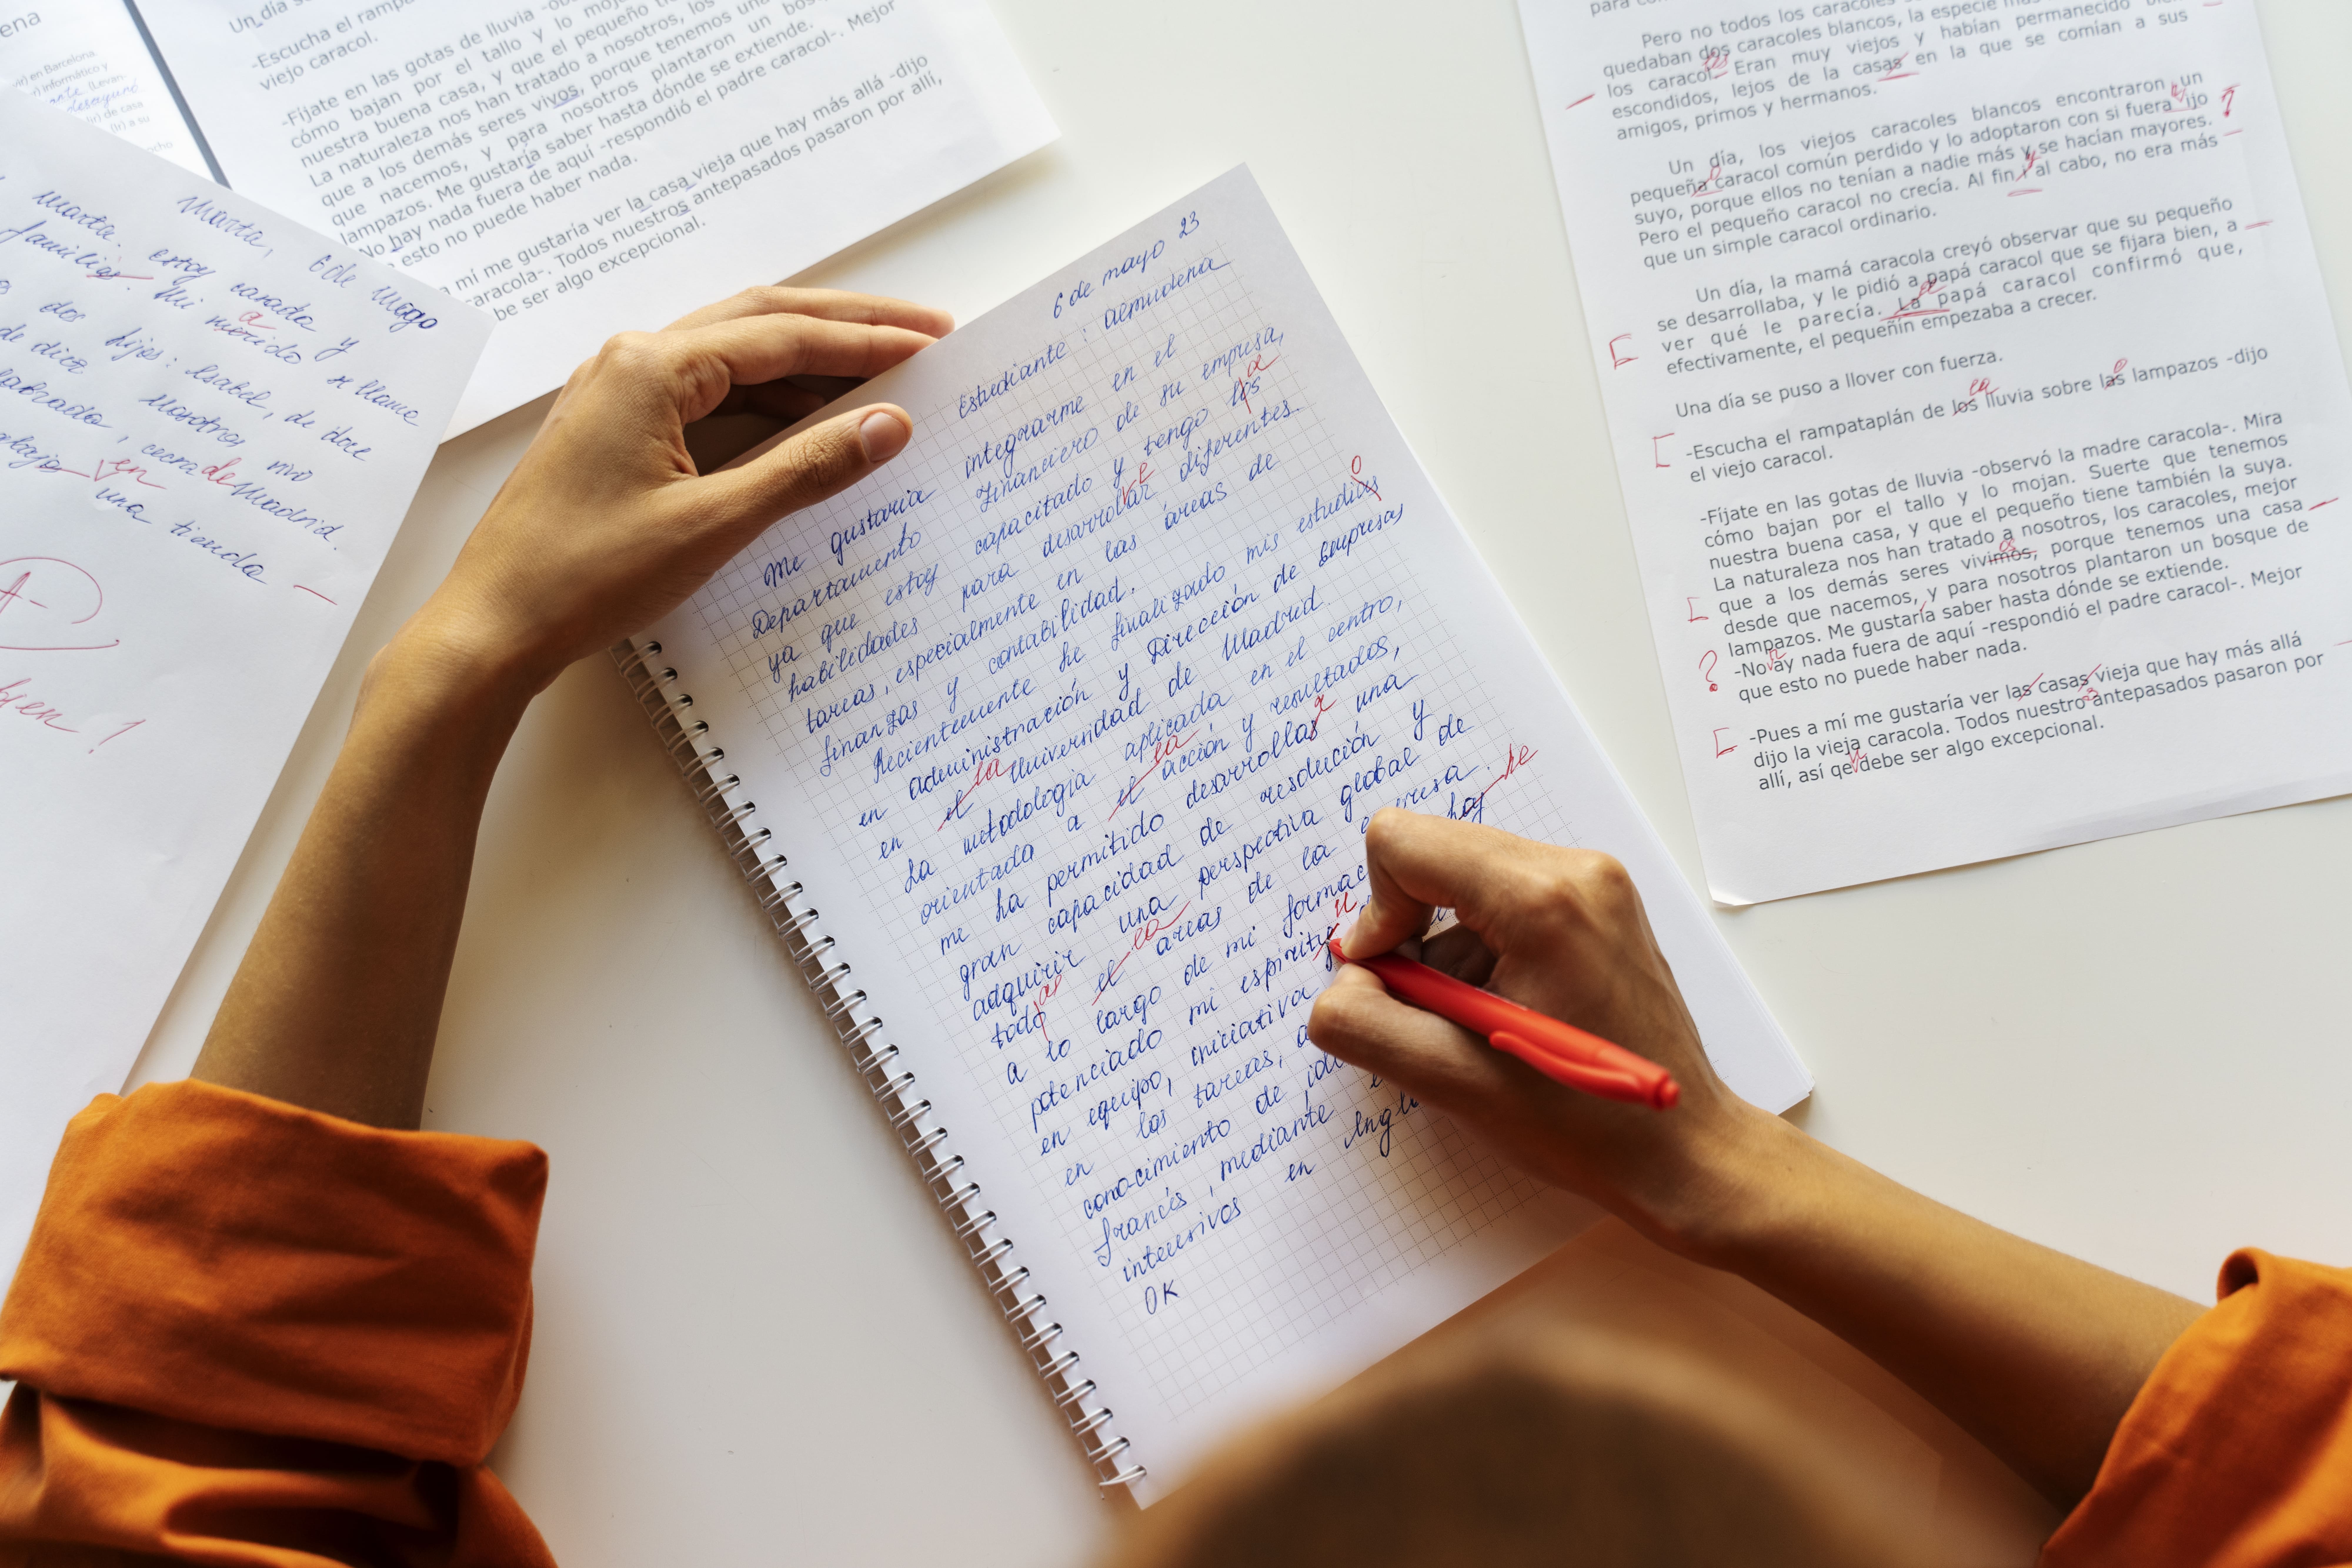 ena
vir) en Barcelona
) informático y
(Levan-
desayuné
(Ir) de casa
(Ir) a su
ocho
Un día s
-Escucha el rampa
viejo caracol.
-Fíjate en las gotas de lluvia -ob
cómo bajan por el tallo y lo moja
nuestra buena casa, y que el pequeño t
La naturaleza nos han tratado a nosotros, los
que a los demás seres vivos, porque tenemos una
que nacemos, y para nosotros plantaron un bosq
lampazos. Me gustaría saber hasta dónde se extiende.
No hay nada fuera de aquí -respondió el padre caracol-. Mejor
esto no puede haber nada.
a mí me gustaría ver la casa vieja que hay más allá -dijo
caracola-. Todos nuestros antepasados pasaron por allí,
be ser algo excepcional.
Marta, 6 de mayo
Marta. estoy casada y
familiar. Mi merido se llame
a
dos hijos: Isabel, de doce
de diez Nosotros vivo
cerca de Madrid.
en una tienda
A-
bien!
6 de mayo 23
Estudiante: Almudena
Me gustaria integrarme en el
Departamento Financiero de su empresa,
ya que estoy capacitado y tengo los
a
habilidades para desarrollar diferentes
tareas, especialmente en las áreas de
finanzas y contabilidad.
Recientemente he finalizado mis estudios
o
en administración y Dirección de Empresas
en el Universidad de Madrid.
la
La metodologia aplicada en el centro,
orientada a el acción y resultados,
la
me ha permitido desarrollas una
r
gran capacidad de resolución y
adquirir una perspectiva global de
todo el areas de la empresa.
as la
a lo largo de mi formac hay
he
potenciado mi espiritu
u
en equipo, iniciativa
en las tareas, a
conocimiento de idi
francés, mediante e
intensivos en Ingl
OK
para co
Pero no todos los caracoles
quedaban dos caracoles blancos, la especie má
los caracol. Eran muy viejos y habían permanecido bie
es
escondidos, lejos de la casas en la que se comían a sus
amigos, primos y hermanos.
Un día, los viejos caracoles blancos encontraron un
pequeña caracol común perdido y lo adoptaron con si fuera ijo
o h ?
suyo, porque ellos no tenían a nadie más y se hacían mayores.
Pero el pequeño caracol no crecía. Al fin al cabo, no era más
y
que un simple caracol ordinario.
Un día, la mamá caracola creyó observar que su pequeño
se desarrollaba, y le pidió a papá caracol que se fijara bien, a
ver qué le parecía. La papá caracol confirmó que,
efectivamente, el pequeñín empezaba a crecer.
Una día se puso a llover con fuerza.
-Escucha el rampataplán de los lluvia sobre las lampazos -dijo
la o
el viejo caracol.
-Fíjate en las gotas de lluvia -observó la madre caracola-. Mira
cómo bajan por el tallo y lo mojan. Suerte que tenemos
nuestra buena casa, y que el pequeño tiene también la suya.
La naturaleza nos han tratado a nosotros, los caracoles, mejor
que a los demás seres vivimos, porque tenemos una casa
desde que nacemos, y para nosotros plantaron un bosque de
lampazos. Me gustaría saber hasta dónde se extiende.
-No ay nada fuera de aquí -respondió el padre caracol-. Mejor
?
que esto no puede haber nada.
-Pues a mí me gustaría ver las casas vieja que hay más allá
dijo la vieja caracola. Todos nuestro antepasados pasaron por
s
allí, así qe debe ser algo excepcional.